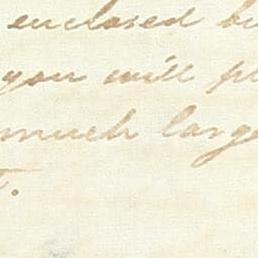 enclosed
you will
much large